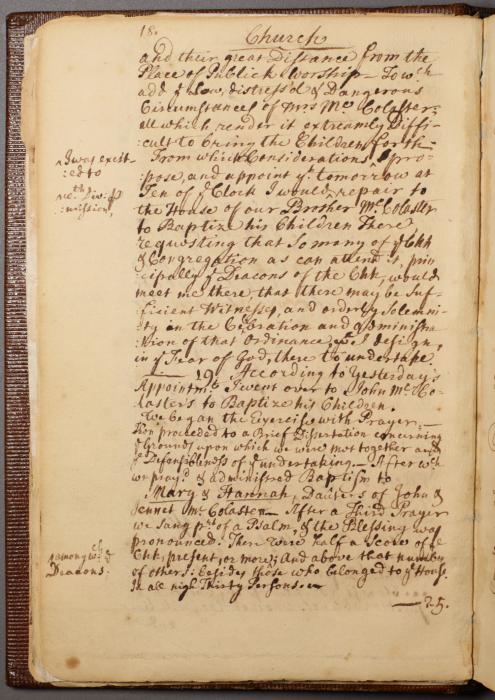 18.
Church
and their great Distance from the
Place of Publick Worship — To wch
add ye low, distress'd & Dangerous
Circumstances of Mrs Mc Colaster;
all which render it extreamly Diffi-
:cult to bring the Children forth —
From which Considerations I pro-
:pose, and appoint yt tomorrow at
Ten of ye Clock I would repair to
the House of our Brother McColaster
to Baptize his Children There
requesting that so many of ye Chh
& Congregation as can attend it, prin
:cipally ye Deacons of the Chh, would
meet me there, that there may be Suf-
:ficient Witnesses, and orderly Solemni-
:ty in the Celebration and Administra-
:tion of that Ordinance, I design,
in ye Fear of God, there to undertake.
I was excit
:ed to
mission,
— 19. According to Yesterday's
Appointmt I went over to John McCo-
laster's to Baptize his Children.
We began the Exercise with Prayer. —
then proceeded to a Brief Dissertation concerning
ye Grounds upon which we were met together and
ye Defensibleness of ye undertaking. — After wch
we pray'd & administred Baptism to
Mary & Hannah, Dauters of John &
Jennet McColaster — After a Third Prayer
we Sang pt of a Psalm, & the Blessing was
pronounced. There were half a Score of ye
Chh, present, or more; And above that number
of others: besides those who belonged to ye House.
In all nigh Thirty Persons.
among wch ye
Deacons:
— 25.